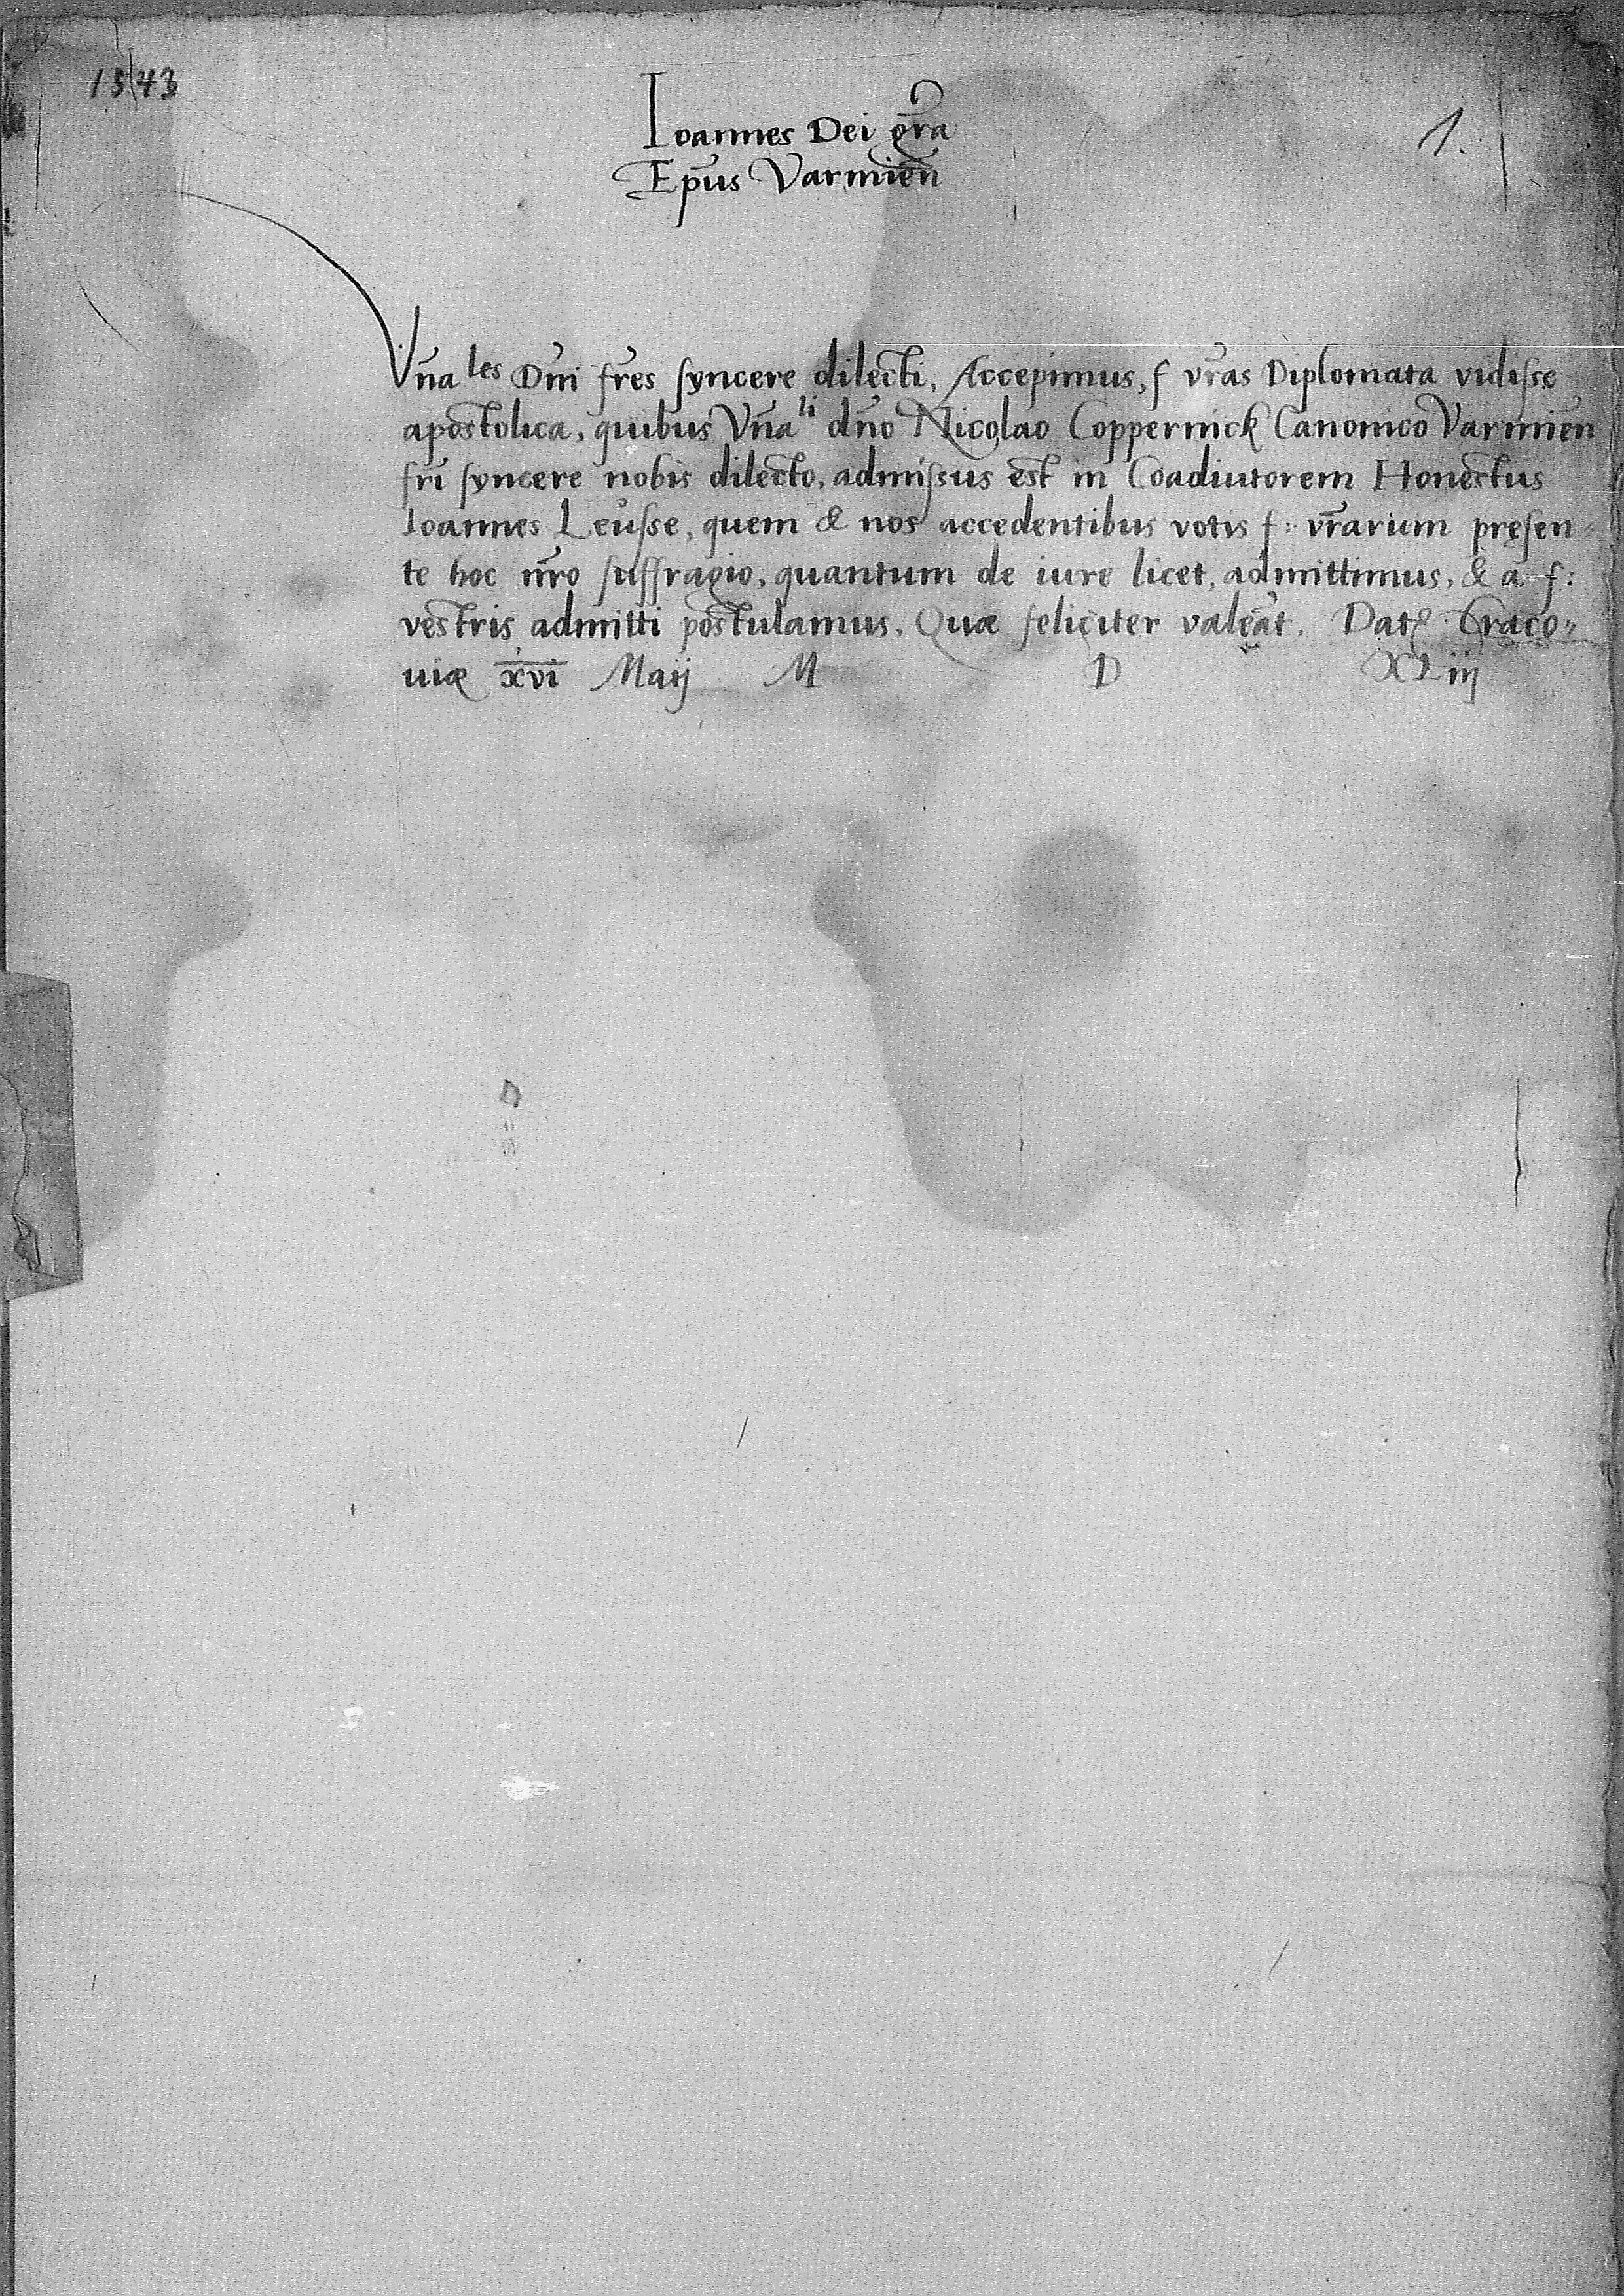 1543
1.
Ioannes Dei gr̃a
Ep̃us Varmien̄
Vñales Dñi fr̃es syncere dilecti, Accepimus, f vr̃as Diplomata vidisse
apostolica, quibus Vñali dño Nicolao Coppernick Canonico Varmien̄
fr̃i syncere nobis dilecto, admissus est in Coadiutorem Honestus
Ioannes Leusse, quem & nos accedentibus votis f: vr̃arum pręsen=
te hoc nr̃o suffragio, quantum de iure licet, admittimus, & a f:
vestris admitti postulamus. Quæ feliciter valeāt. Datę Craco=
uiæ xvi Maij M D XLiij